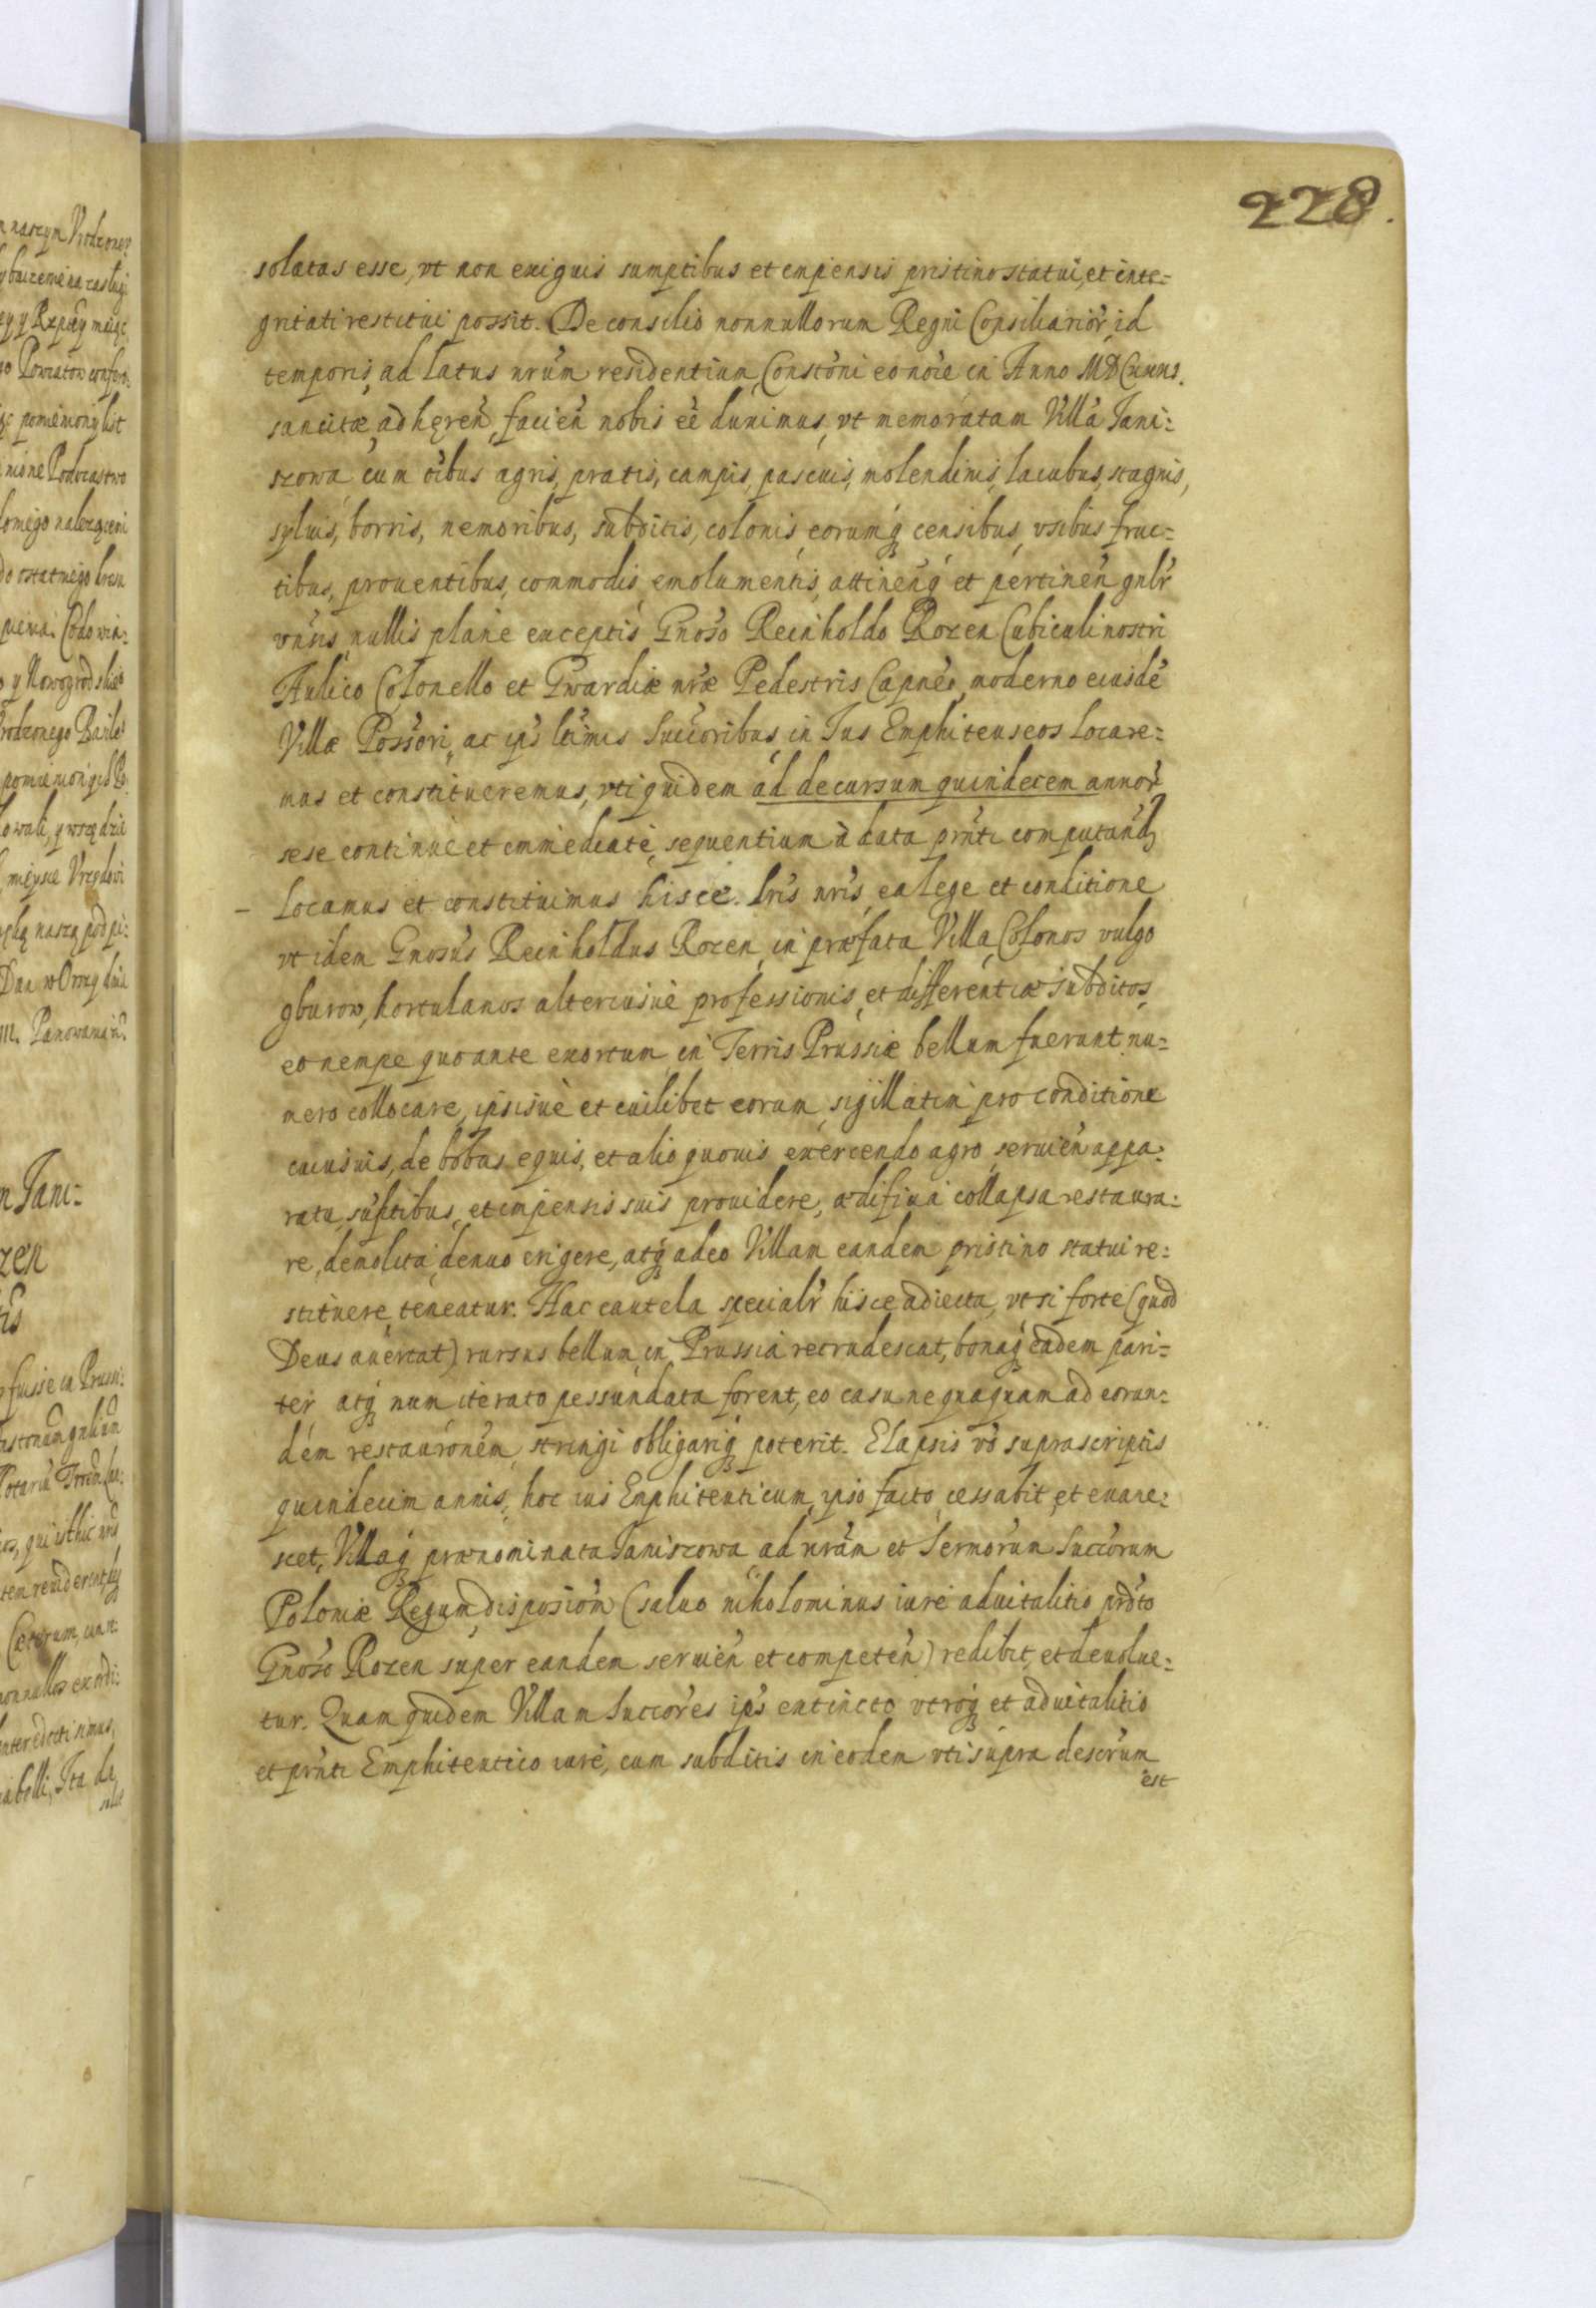 228.
solatas esse, vt non exiguis sumptibus et impensis pristino statui, et inte=
gritati restitui possit. De consilio nonnullorum Regni Consiliarior̃, id
temporis, ad latus nr̃um residentium, Constõni eo nõie in Anno
sancitæ, adhęreñ, facieñ nobis eẽ duximus, vt memoratam Villã Jani=
szowa cum õibus agris, pratis, campis, pascuis, molendinis, lacubus, stagnis,
syluis, borris, nemoribus, subditis, colonis eorumq́ censibus, vsibus fruc=
tibus, prouentibus, commodis, emolumentis, attineñq́ et pertineñ gnlr̃
vñsis, nullis plane exceptis Gnoso Reinholdo Rozen Cubiculi nostri
Aulico Colonello et Gwardiæ nr̃æ Pedestris Capñeo, moderno eiusdẽ
Villæ Possori, ac ips̃ ltimis Succoribus, in Jus Emphiteuseos Locare=
mus et constitueremus, vti quidem ad decursum quindecem annor̃
sese continuè et immediatè, sequentium à data pr̃nti computand
– Locamus et constituimus hisce lr̃is nr̃is, ea lege et conditione
vt idem Gnosus Reinholdus Rozen, in præfata Villa, Colonos vulgo
gburow, hortulanos alteriusuè professionis, et differentiæ subditos,
eo nempe quo ante exortum, in Terris Prussiæ bellum fuerunt nu=
mero collocare, ipsisuè et cuilibet eorum, sigillatim pro conditione
cuiusuis, de bobus, equis, et alio quouis exercendo agro seruieñ appa=
ratu, sũptibus, et impensis suis prouidere, ædificia collapsa restaura=
re, demolita, denuo erigere, atq́ adeo Villam eandem pristino statui re=
stituere, teneatur. Hac cautela specialr̃ hisce adiecta, vt si forte (quod
Deus auertat) rursus bellum, in Prussia recrudescat, bonaq́ eadem pari=
ter atq́ num iterato pessundata forent, eo casu nequaquam ad eorun=
dem restaurõnem, stringi obligariq́ poterit. Elapsis vo suprascriptis
quindecim annis, hoc ius Emphiteuticum, ipso facto, cessabit, et exare=
scet, Villaq́ prænominata Janiszowa, ad nr̃am et Sermorum Succorum
Poloniæ Regum, disposiom̃ (saluo nihilominus iure aduitalitio prdto
Gnoso Rozen super eandem seruieñ et competeñ) redibit, et deuolue=
tur. Quam quidem Villam Succores ips̃ extincto vtroq́ et aduitalitio
et pr̃nti Emphiteutico iure, cum subditis in eodem vti supra descrum
est